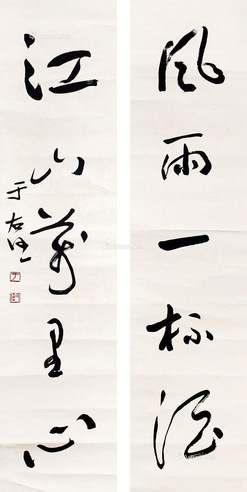 风雨一杯酒
江山万里心
于右任